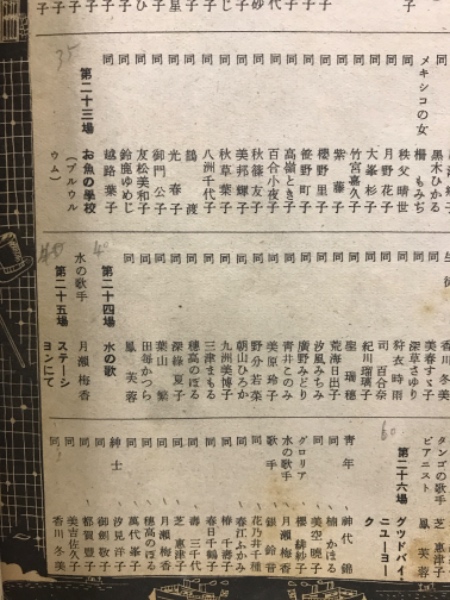 黒木ひかる
メキシコの女 柵 もみぢ
同 秩父晴世
同 月野花子
同 大峯杉子
同 竹宮嘉久子
同 紫 藤子
同 櫻野里子
同 笹野町子
同 高嶺とき子
同 百合小夜子
同 秋篠友子
同 美邦輝子
同 秋草葉子
同 八洲千代子
同 鶴 渡
同 光 春子
同 御門公子
同 友松美和子
同 鈴鹿ゆめじ
同 越路葉子
35
第二十三場 お魚の學校
(プルウル
ウム)
香川冬美
同 美春すゞ子
同 深草さゆり
同 狩衣時雨
同 司 百合奈
同 紀川瑠璃子
同 星 瑞穂
同 荒海日出子
同 汐風みちみ
同 廣野みどり
同 青井このみ
同 美原玲子
同 野分若菜
同 朝山ひろか
同 九洲美博子
同 三津まもる
同 穂高のぼる
同 深綠夏子
同 葉山 繁
同 田毎かつら
同 鳳 芙蓉
40
第二十四場 水の歌
水の歌手 月瀬梅香
第二十五場 ステーシ
ヨンにて
タンゴの歌手 芝 惠津子
ピアニスト 鳳 芙蓉
60
第二十六場 グツドバイ・
ニユーヨー
ク
青年 神代 錦
同 楠 かほる
同 美空曉子
グロリア 櫻 緋紗子
水の歌手 月瀬梅香
歌手 銀 鈴音
同 花乃井千種
同 春江ふかみ
同 椿 千壽子
同 春日千鶴子
同 壽 三千代
同 芝 惠津子
同 月瀬梅香
同 穂高のぼる
同 萬代峯子
紳士 汐見洋子
同 御劍敬子
同 都賀豐子
同 美吉佐久子
同 香川冬美